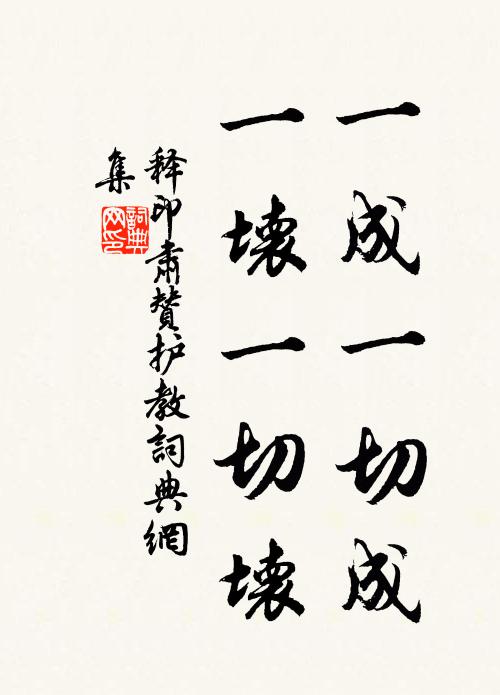 一成一切成
一壞一切壞
释印肅贊护教詞典網
集
詞典
网印